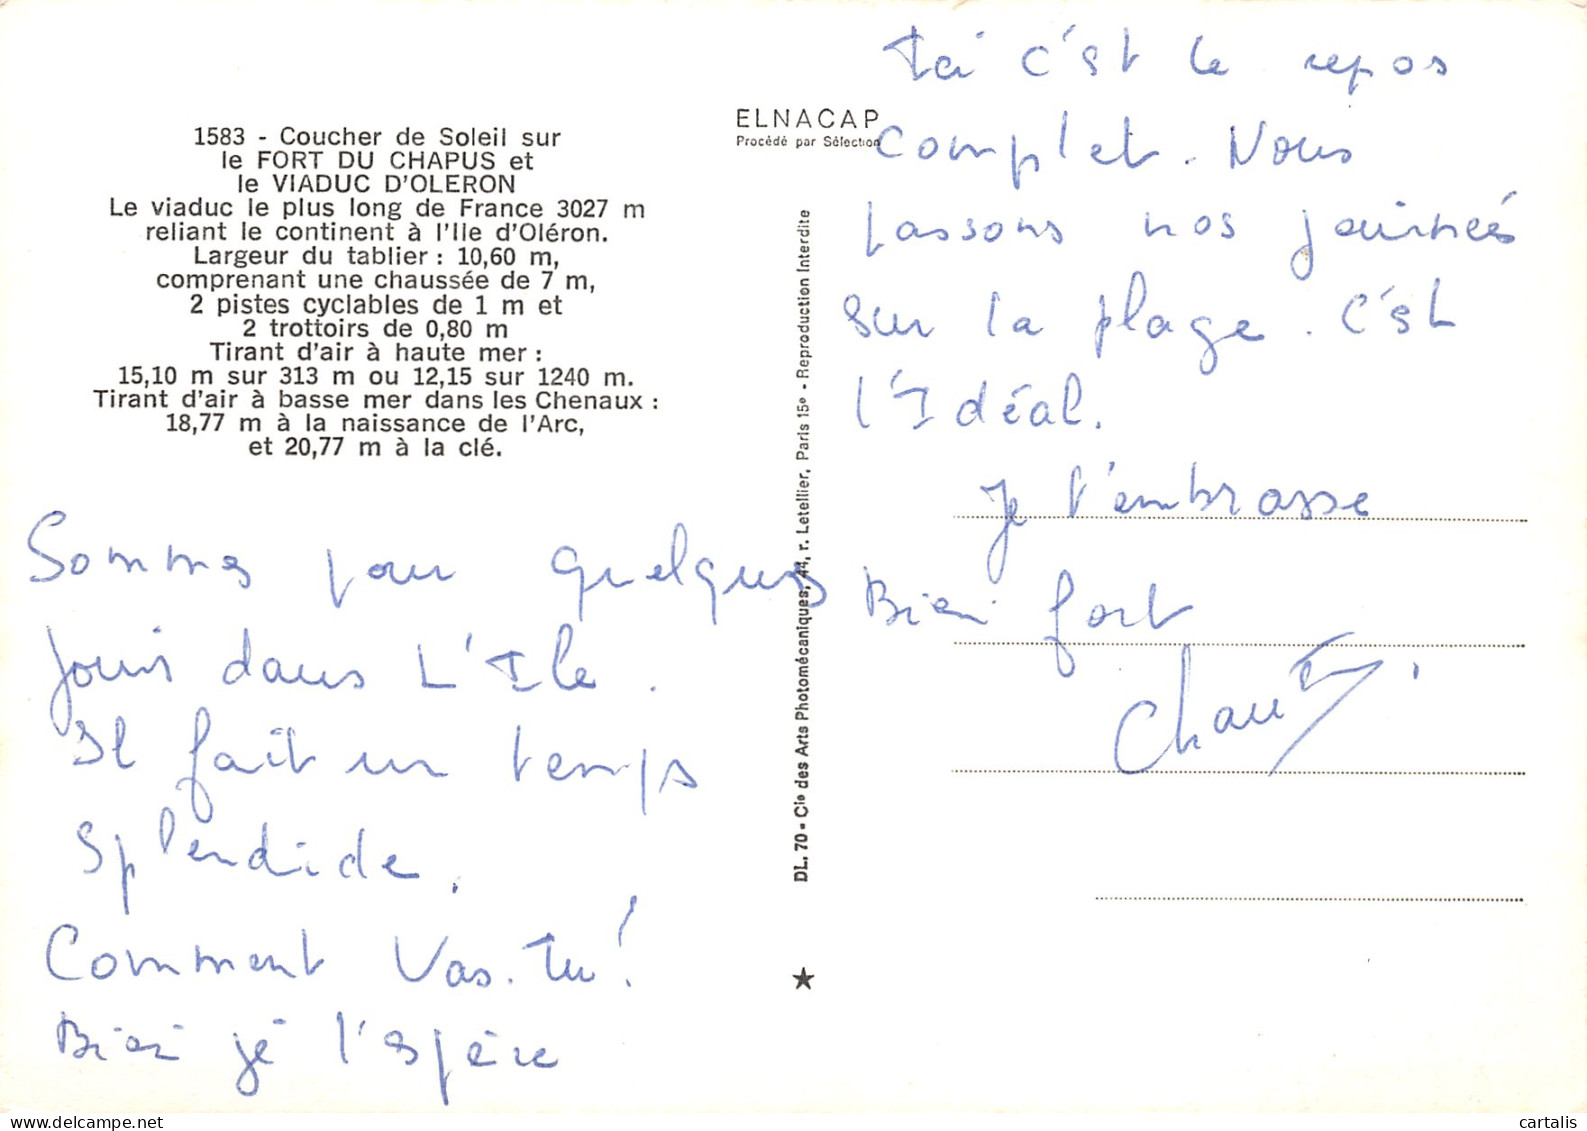 1583 - Coucher de Soleil sur
le FORT DU CHAPUS et
le VIADUC D'OLERON
Le viaduc le plus long de France 3027 m
reliant le continent à l'Ile d'Oléron.
Largeur du tablier : 10,60 m,
comprenant une chaussée de 7 m,
2 pistes cyclables de 1 m et
2 trottoirs de 0,80 m
Tirant d'air à haute mer :
15,10 m sur 313 m ou 12,15 sur 1240 m.
Tirant d'air à basse mer dans les Chenaux :
18,77 m à la naissance de l'Arc,
et 20,77 m à la clé.
Sommes pour quelques
jours dans L'Ile.
Il fait un temps
splendide.
Comment Vas-Tu!
Bien je l'espère
ELNACAP
Procédé par Sélection
DL. 70 - Cie des Arts Photomécaniques, 44, r. Letellier, Paris 15e - Reproduction Interdite
★
Ici c'est le repos
complet. Nous
passons nos journées
sur la plage. C'est
l'Idéal.
Je t'embrasse
Bien fort
cartalis